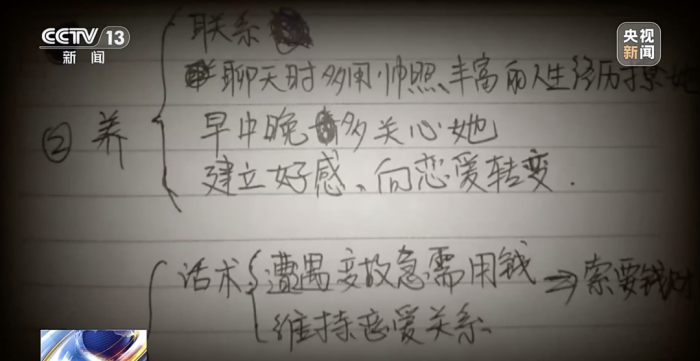 CCTV 13
新闻
央视
新闻
联系
聊天时多用帅照、丰富的人生经历
② 养
早中晚多关心她
建立好感、向恋爱转变.
话术
遭遇变故急需用钱
⇒索要钱财
维持恋爱关系.